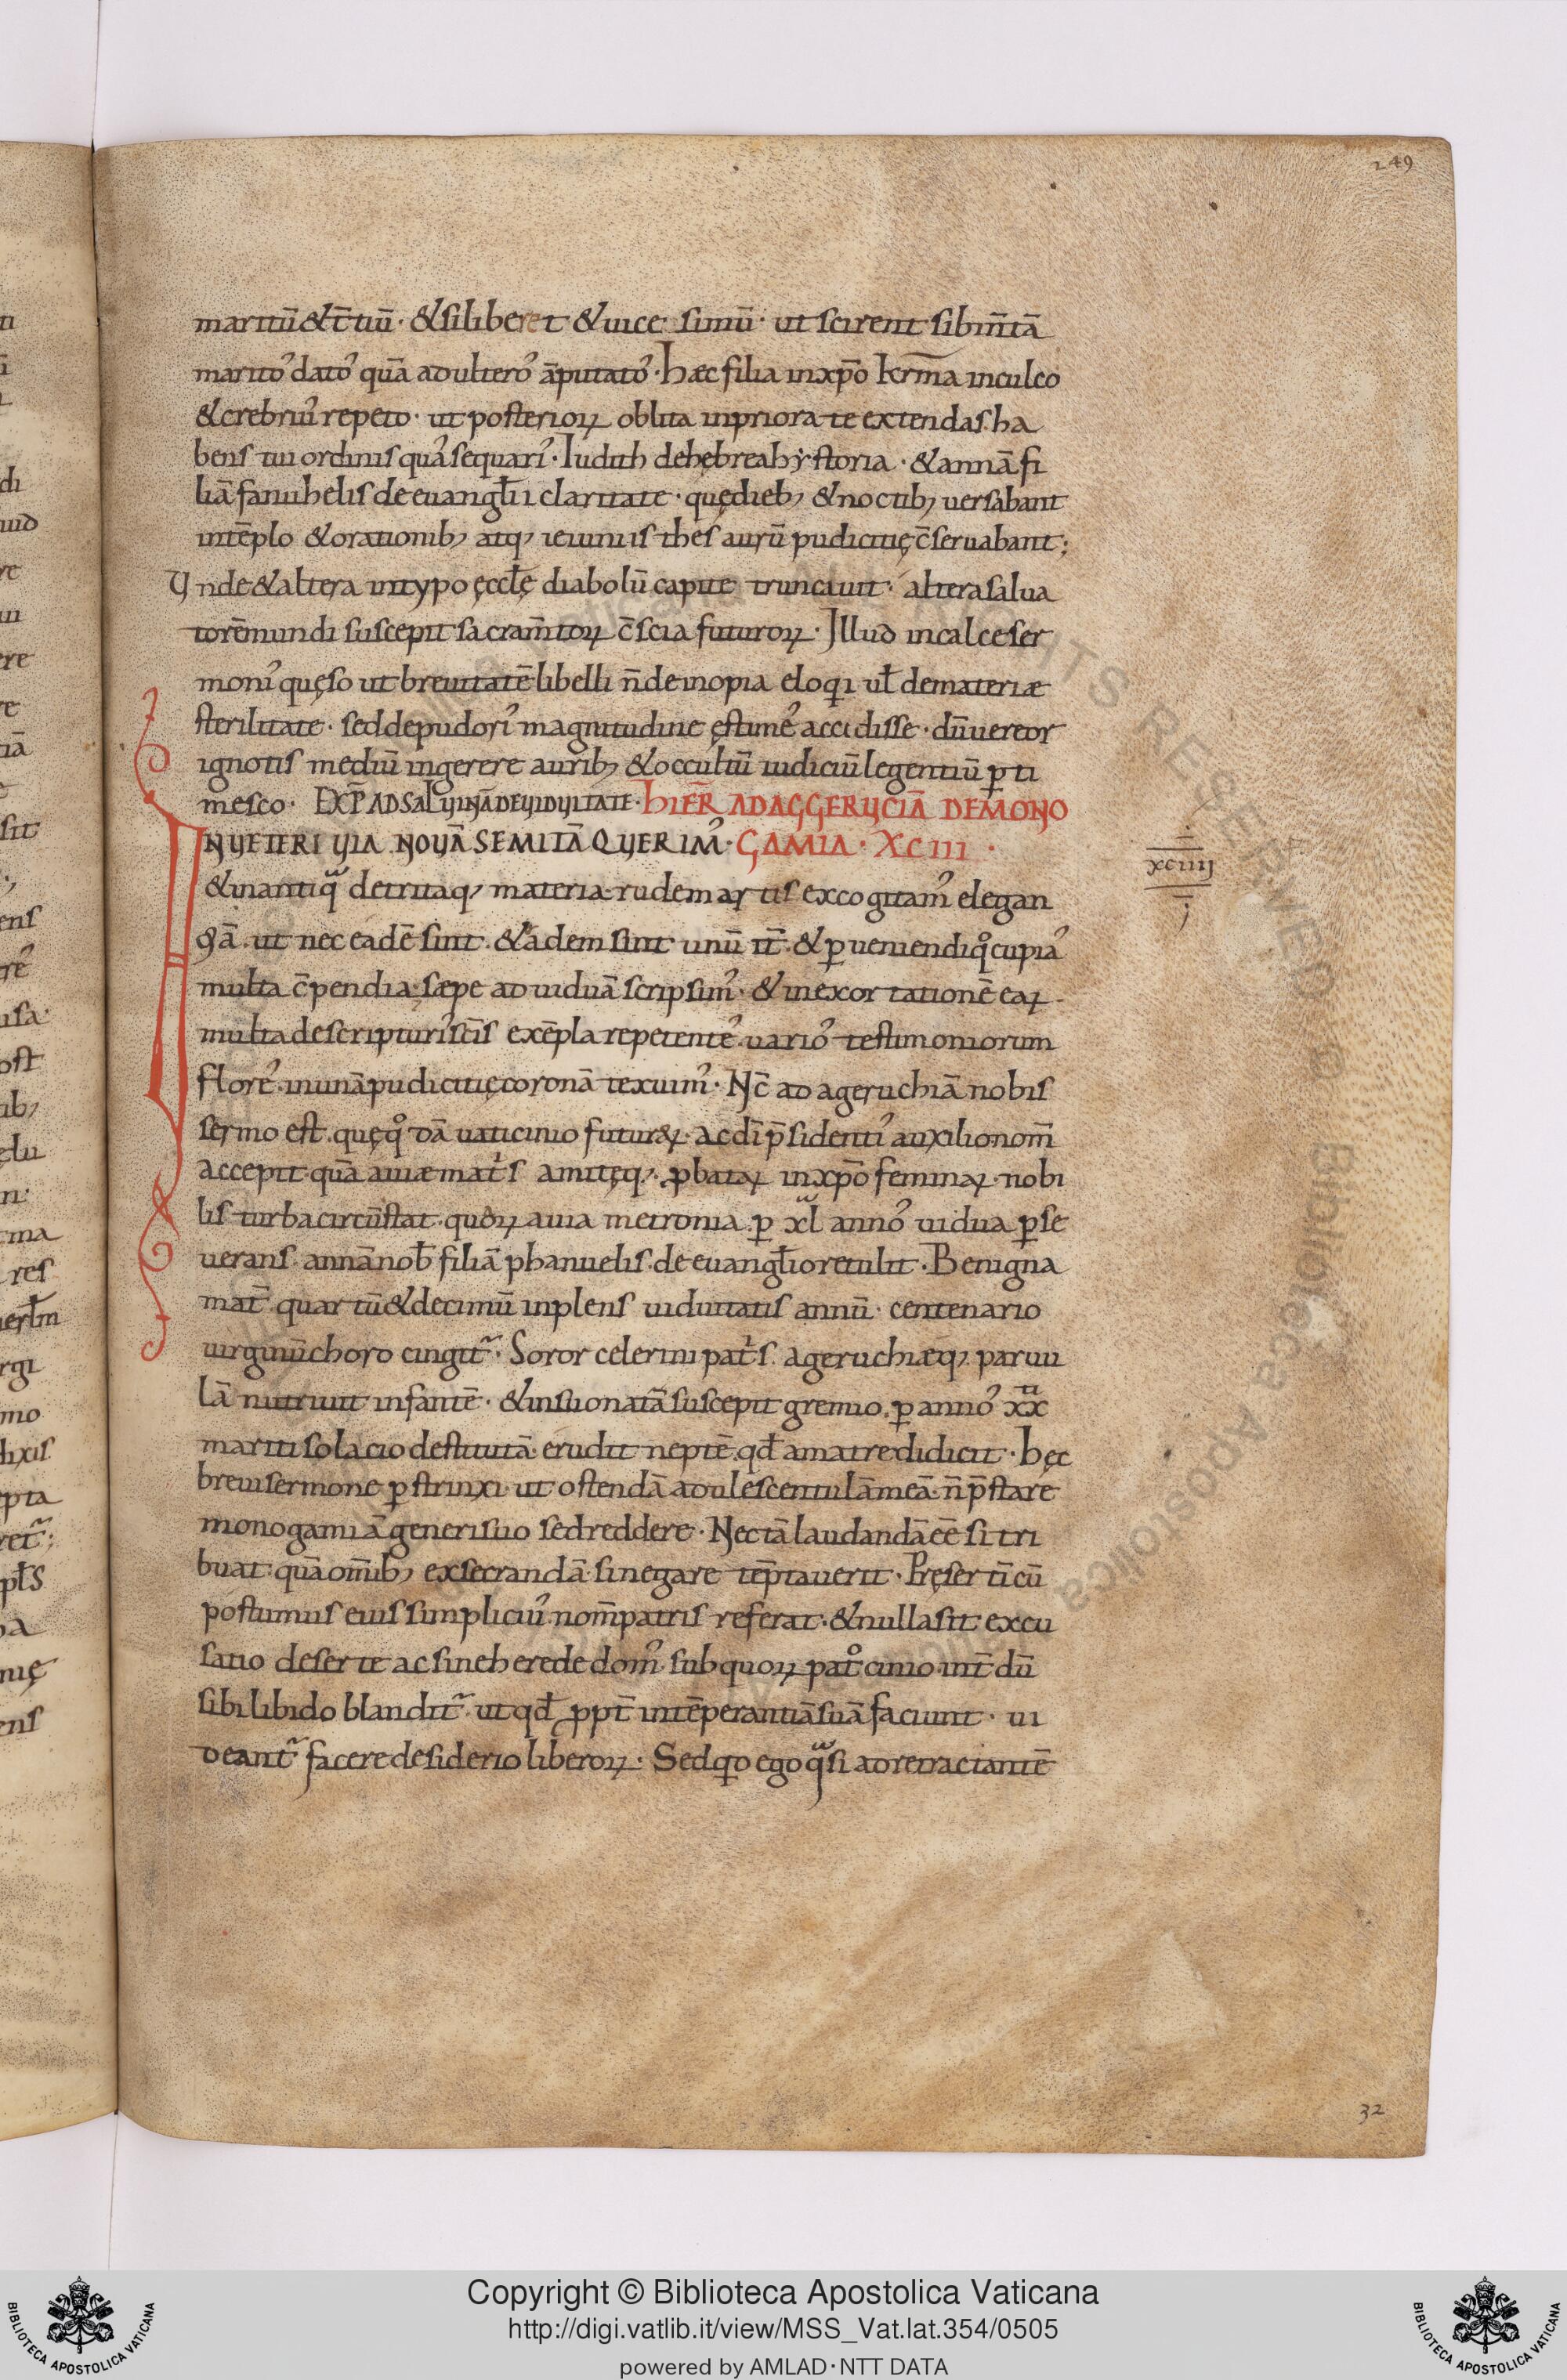 249
maritū & t̄tiū · & si liberet & uice simū · ut scirent sibi n̄ tā
marito᾽ dato᾽ quā adultero᾽ āputato᾽ · Hæc filia in xp̄o kr̄ma inculco
& crebriu᾽ repeto · ut posterioꝝ oblita in priora te extendas. ha
bens tui ordinis qua᾽ sequari᾽ · Iudith de hębrea hẏstoria · & annā fi
liā fanuhelis de euangl̄ii claritate · quę dieb; & noctib; uersabant
in tēplo & orationib; atq; ieiuniis thesaurū pudicitię c̄seruabant;
Vnde & altera in typo ęccl̄ę diabolū capite truncauit · altera salua
torē mundi suscepit sacram̄toꝝ c̄scia futuroꝝ · Illud in calce ser
moni᾽ quęso ut breuitatē libelli n̄ de inopia eloqi ul̄ de materiæ
sterilitate · sed de pudori᾽ magnitudine ęstime᾽ accidisse · dū uereor
ignotis mediū ingerere aurib; & occultū iudiciū legentiū ꝑti
mesco · EXP̄ AD SALVINĀ DE VIDVITATE · HIER̄ AD AGGERVCIĀ DE MONO
IN VETERI VIA NOVĀ SEMITĀ QVERIM᾽ · GAMIA · XCIII ·
xciiii
& in antiqͣ detritaq; materia rudem artis excogitam᾽ elegan
& p̱ueniendi qͦ cupia᾽
multa c̄pendia · sæpe ad uiduā scripsim᾽ · & in exortationē eaꝝ
multa de scripturi᾽ sc̄is exēpla repetente᾽ uario᾽ testimoniorum
flore᾽ in unā pudicitię coronā texuim᾽ · Nc̄ ad ageruchiā nobis
sermo est. quę qͦdā uaticinio futuroꝝ · ac dī p̄sidenti᾽ auxilio nom̄
accepit quā auiæ mat͛s amitęq; ꝓbataꝝ in xp̄o feminaꝝ · nobi
lis turba circūstat. quaꝝ auia metronia ꝑ xl anno᾽ uidua ꝑse
uerans annā nob̄ filiā phanuelis. de euangl̄io retulit · Benigna
mat̄ quartū & decimū inplens uiduitatis annū · centenario
uirginū choro cingit᷑ · Soror celerini pat͛s ageruchiæq; paruu
lā nutriuit infantē · & in suo natā suscepit gremio. ꝑ anno᾽ xx
mariti solacio destitutā. erudit neptē. qd̄ a matre didicit · Hęc
breui sermone ꝑstrinxi. ut ostendā adulescentulā meā n̄ p̄stare
monogamiā generi suo sed reddere · Nec tā laudandā eē si tri
buat · quā om̄ib; exsecrandā · si negare tēptauerit · Pręsertī cū
postumus eius simpliciu᾽ nom̄ patris referat · & nulla sit excu
satio deserte ac sine herede dom᾽ sub quoꝝ patͦcinio int̄dū
sibi libido blandit᷑ ut qd̄ ꝓpt̄ intēperantiā suā faciunt · ui
deant᷑ facere desiderio liberoꝝ · Sed qͥd ego qͣsi ad retractantē
32
Copyright © Biblioteca Apostolica Vaticana
http://digi.vatlib.it/view/MSS_Vat.lat.354/0505
powered by AMLAD·NTT DATA
BIBLIOTECA APOSTOLICA VATICANA
BIBLIOTECA APOSTOLICA VATICANA